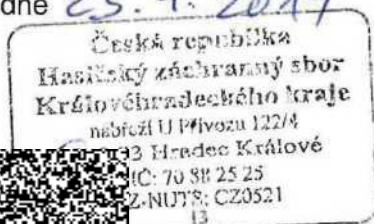 dne 25. 4. 2017
Česká republika
Hasičský záchranný sbor
Královéhradeckého kraje
nábřeží U Přívozu 122/4
03 Hradec Králové
IČ: 70 88 25 25
Z-NUTS: CZ0521
13